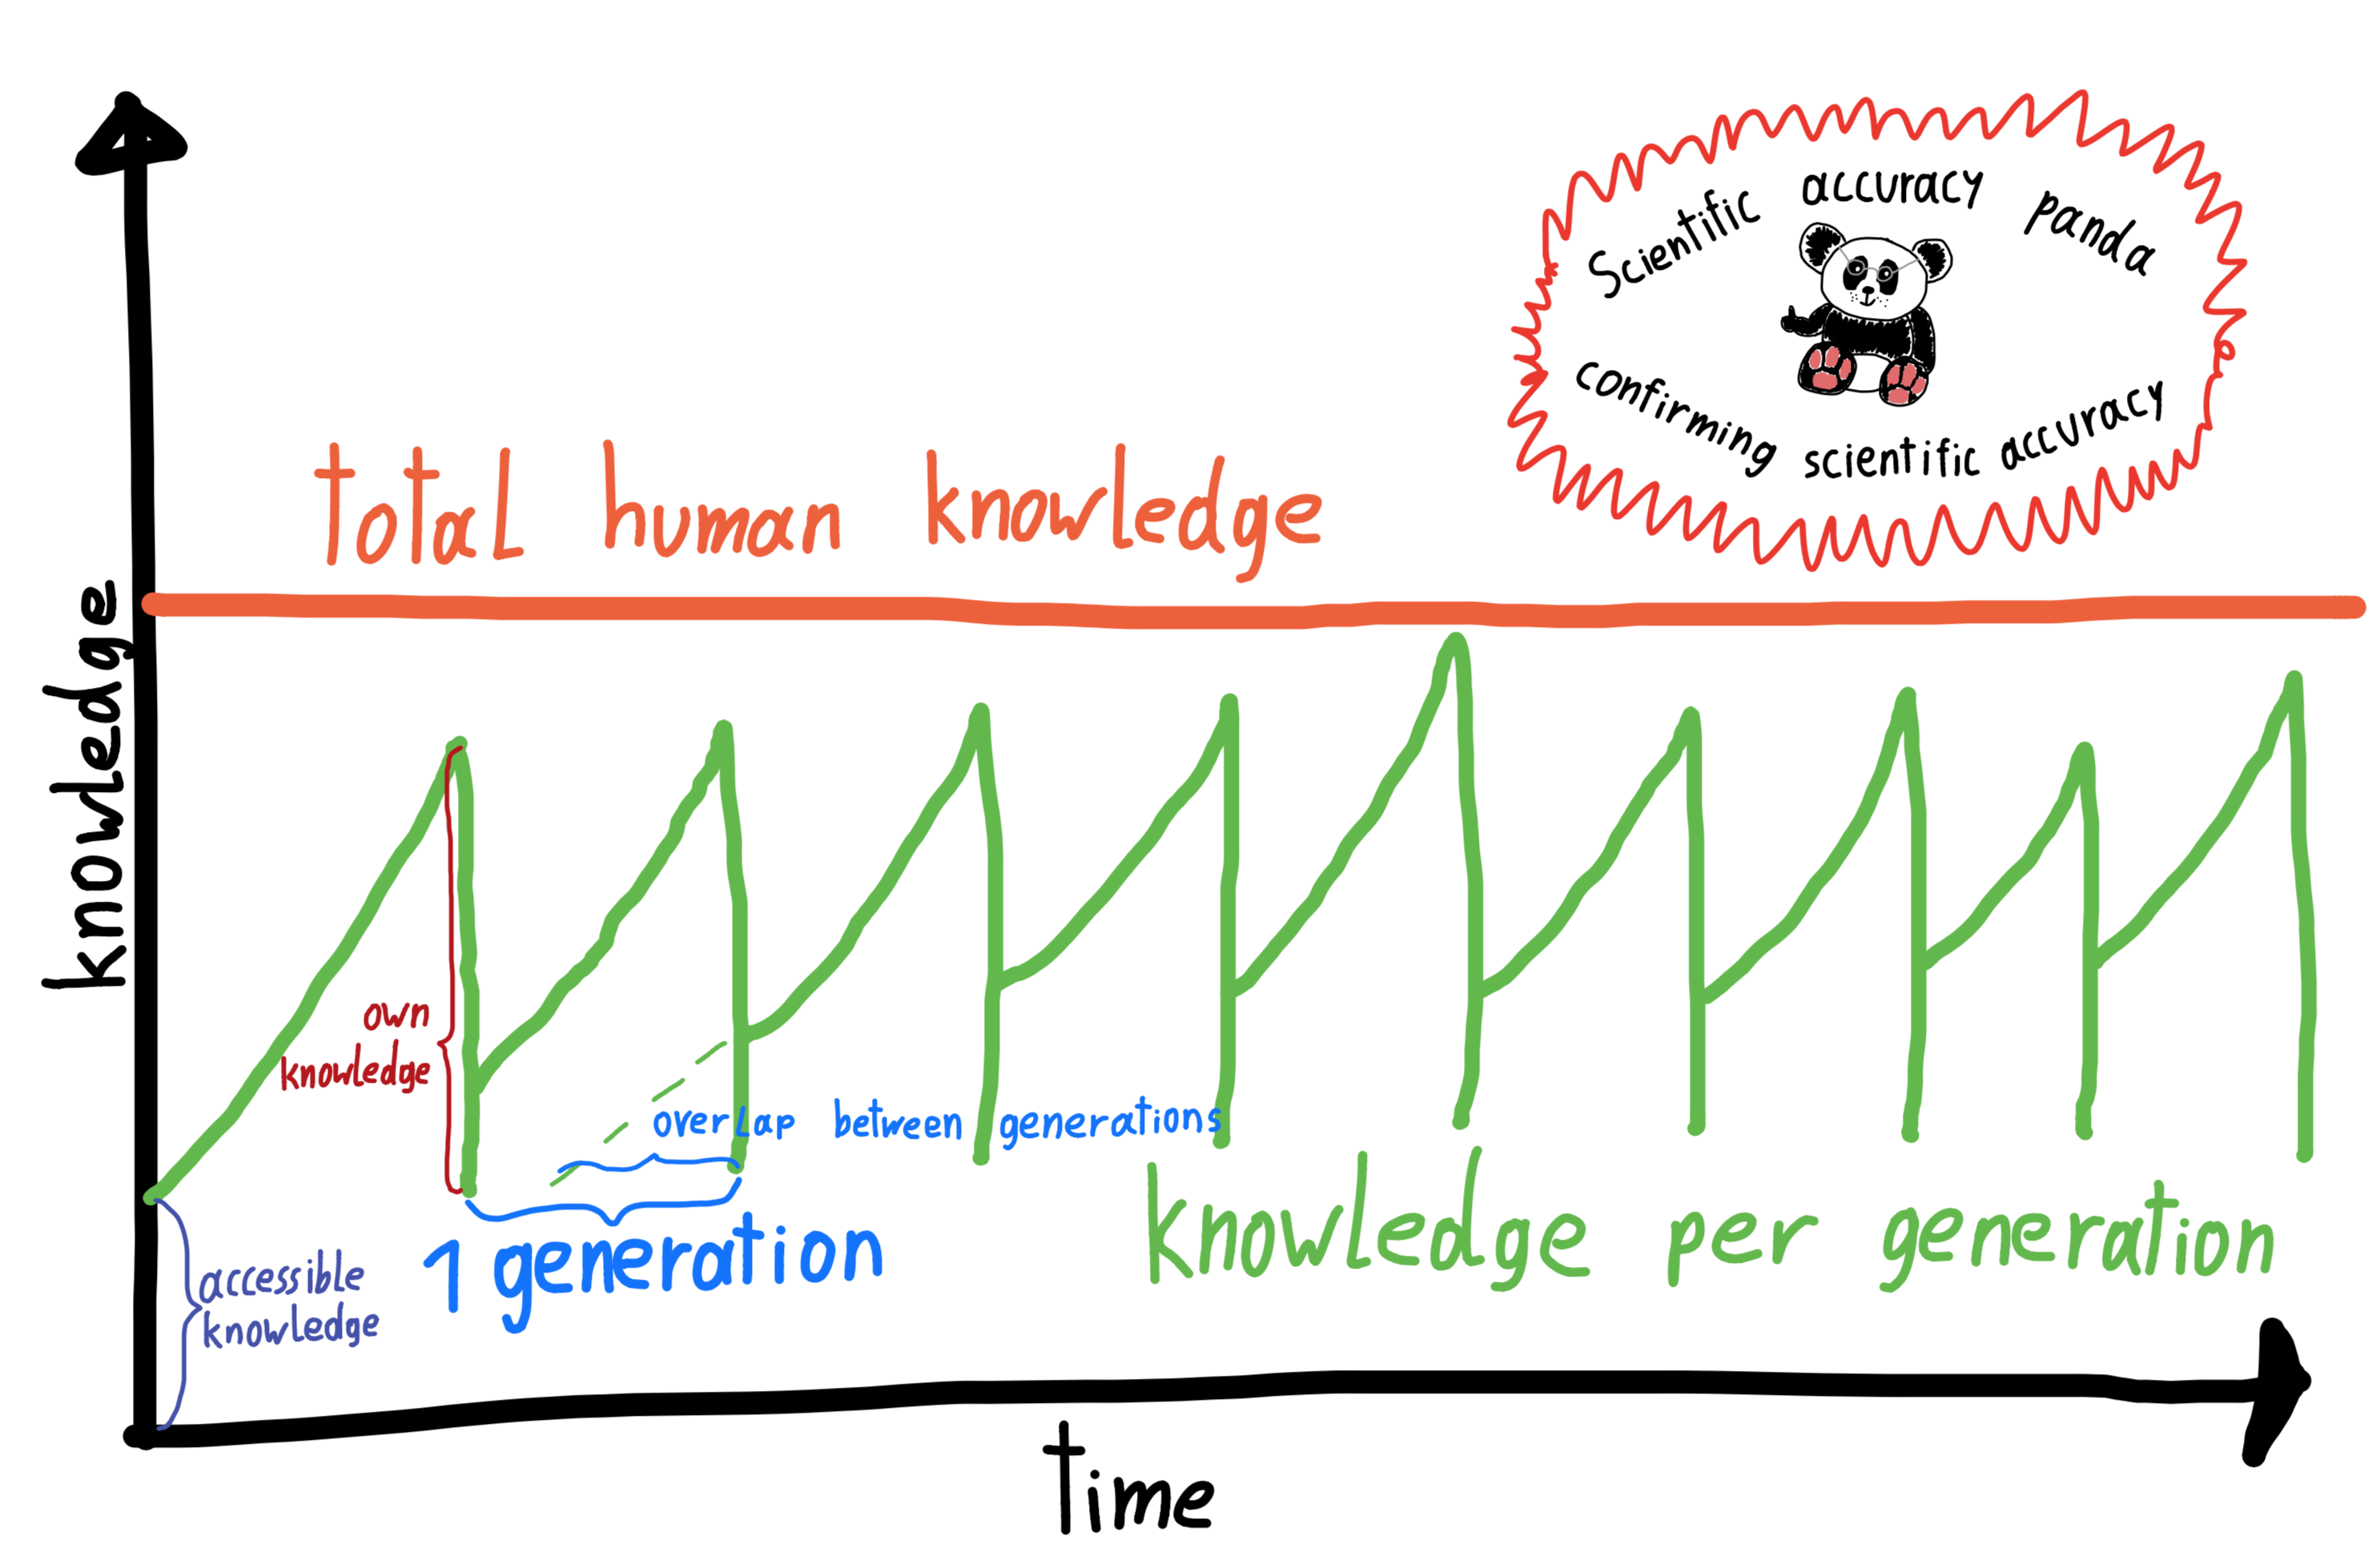 Scientific accuracy panda
confirming scientific accuracy
total human knowledge
knowledge
own
knowledge
overlap between generations
1 generation
knowledge per generation
accessible
knowledge
time